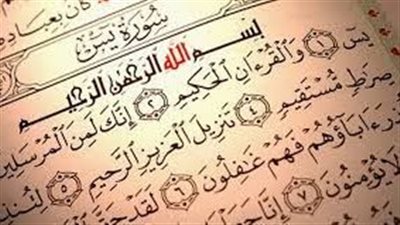 كان بعباده
سورة يس
بسم الله الرحمن الرحيم
يس ١ والقرءان الحكيم ٢ إنك لمن المرسلين
صرط مستقيم ٤ تنزيل العزيز الرحيم ٥ لتنذ
ذر ءاباؤهم فهم غافلون ٦ لقد حق
لا يؤمنون ٧ إنا جعل